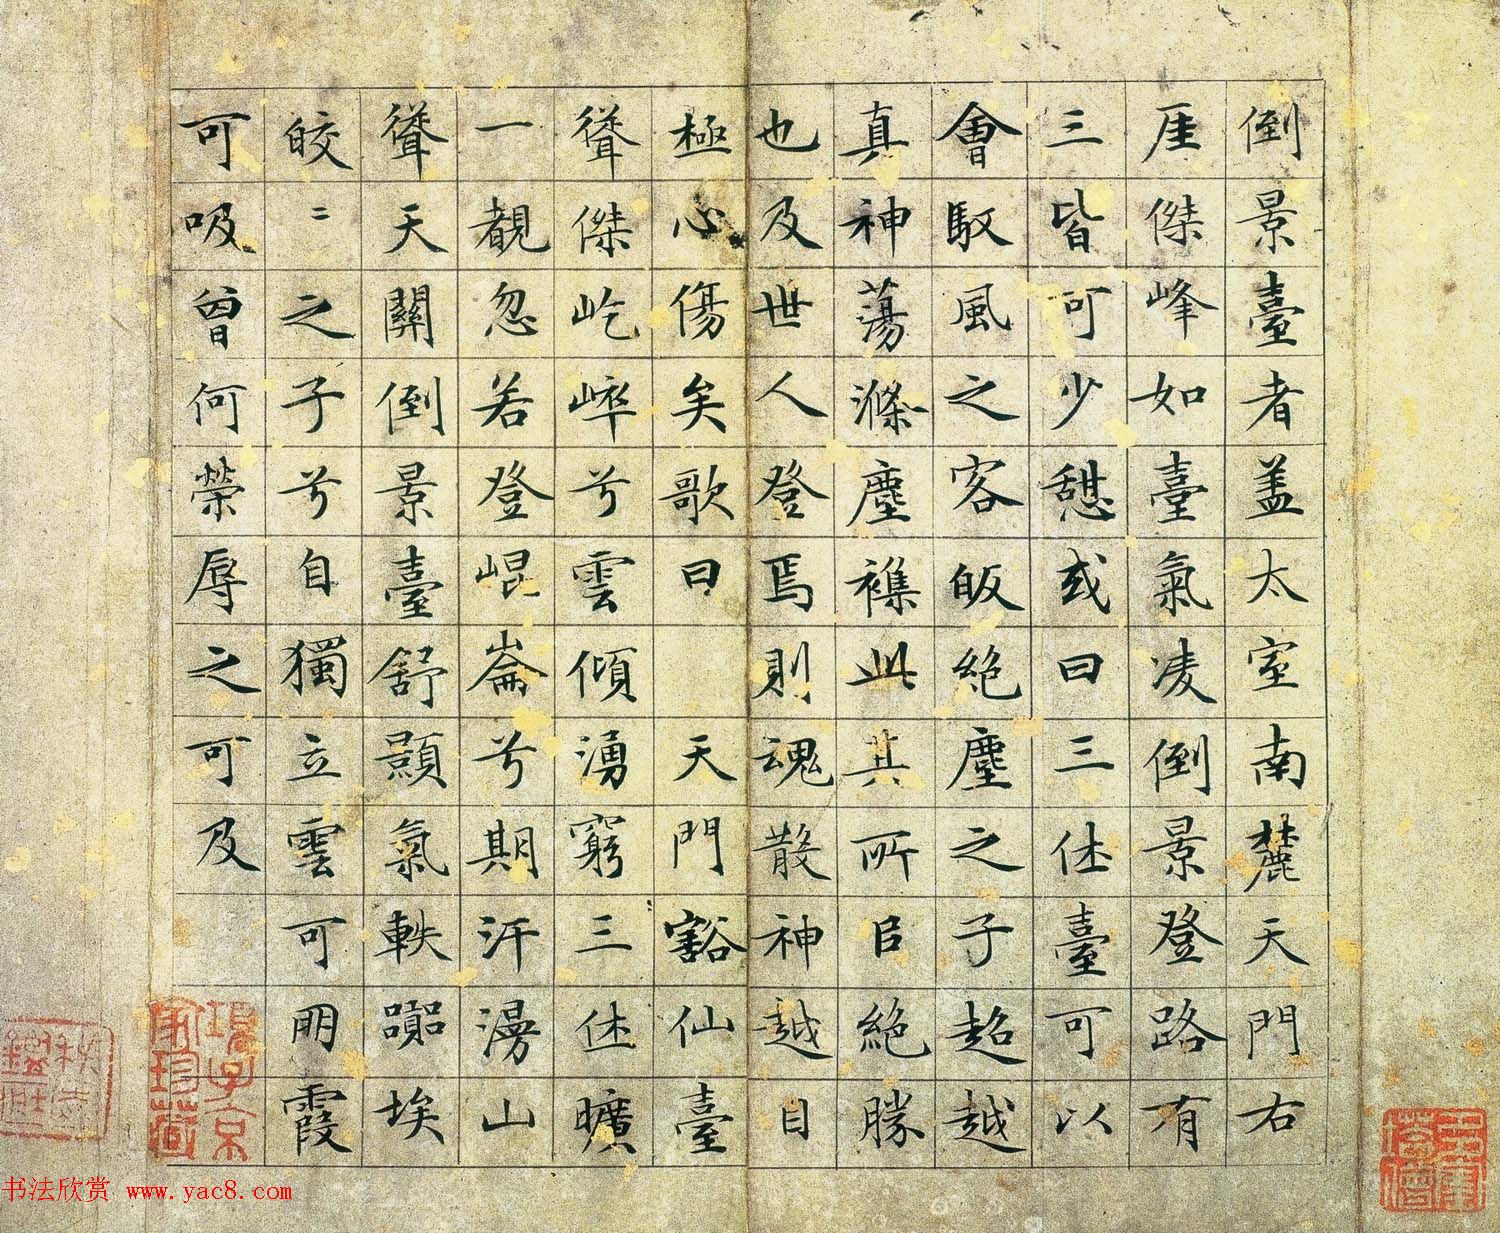 倒景臺者蓋太室南麓天門右
崖傑峰如臺氣凌倒景登路有
三皆可少憇或曰三休臺可以
會馭風之客皈絕塵之子超越
真神蕩滌塵襍此其所㠯絕勝
也及世人登焉則魂散神越目
極心傷矣歌曰 天門豁仙臺
聳傑屹崒兮雲傾湧窮三休曠
一覩忽若登崐崙兮期汗漫山
聳天關倒景臺舒顥氣軼囂埃
皎〻之子兮自獨立雲可朋霞
可吸曾何榮辱之可及
項子京家珍藏
书法欣赏 www.yac8.com